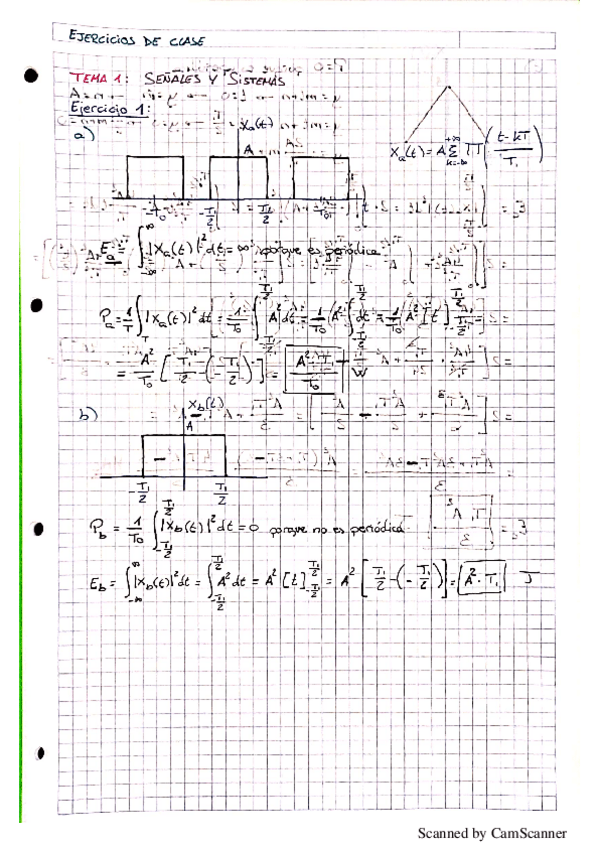 EJERCICIOS DE CLASE
TEMA 1: SEÑALES Y SISTEMAS
Ejercicio 1:
a)
Xₐ(t)
A
Xₐ(t) = A Σ_{k=-∞}^{+∞} Π((t-kT)/T₁)
-T₀ -T₁/2 T₁/2 T₀
Eₐ = ∫_{-∞}^{∞} |Xₐ(t)|² dt = ∞ porque es periódica
Pₐ = 1/T ∫_T |Xₐ(t)|² dt = 1/T₀ ∫_{-T₁/2}^{T₁/2} A² dt = 1/T₀ A² ∫_{-T₁/2}^{T₁/2} dt = 1/T₀ A² [t]_{-T₁/2}^{T₁/2} =
= A²/T₀ [T₁/2 - (-T₁/2)] = A²·T₁/T₀ W
b)
X_b(t)
A
-T₁/2 T₁/2
P_b = 1/T₀ ∫_{-T₁/2}^{T₁/2} |X_b(t)|² dt = 0 porque no es periódica
E_b = ∫_{-∞}^{∞} |X_b(t)|² dt = ∫_{-T₁/2}^{T₁/2} A² dt = A² [t]_{-T₁/2}^{T₁/2} = A² [T₁/2 - (-T₁/2)] = A²·T₁ J
Scanned by CamScanner